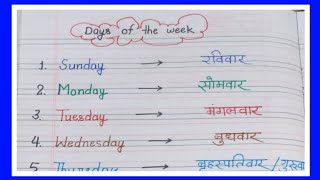 Days of the week
1. Sunday → रविवार
2. Monday → सोमवार
3. Tuesday → मंगलवार
4. Wednesday → बुधवार
5 Thursday → बृहस्पतिवार /